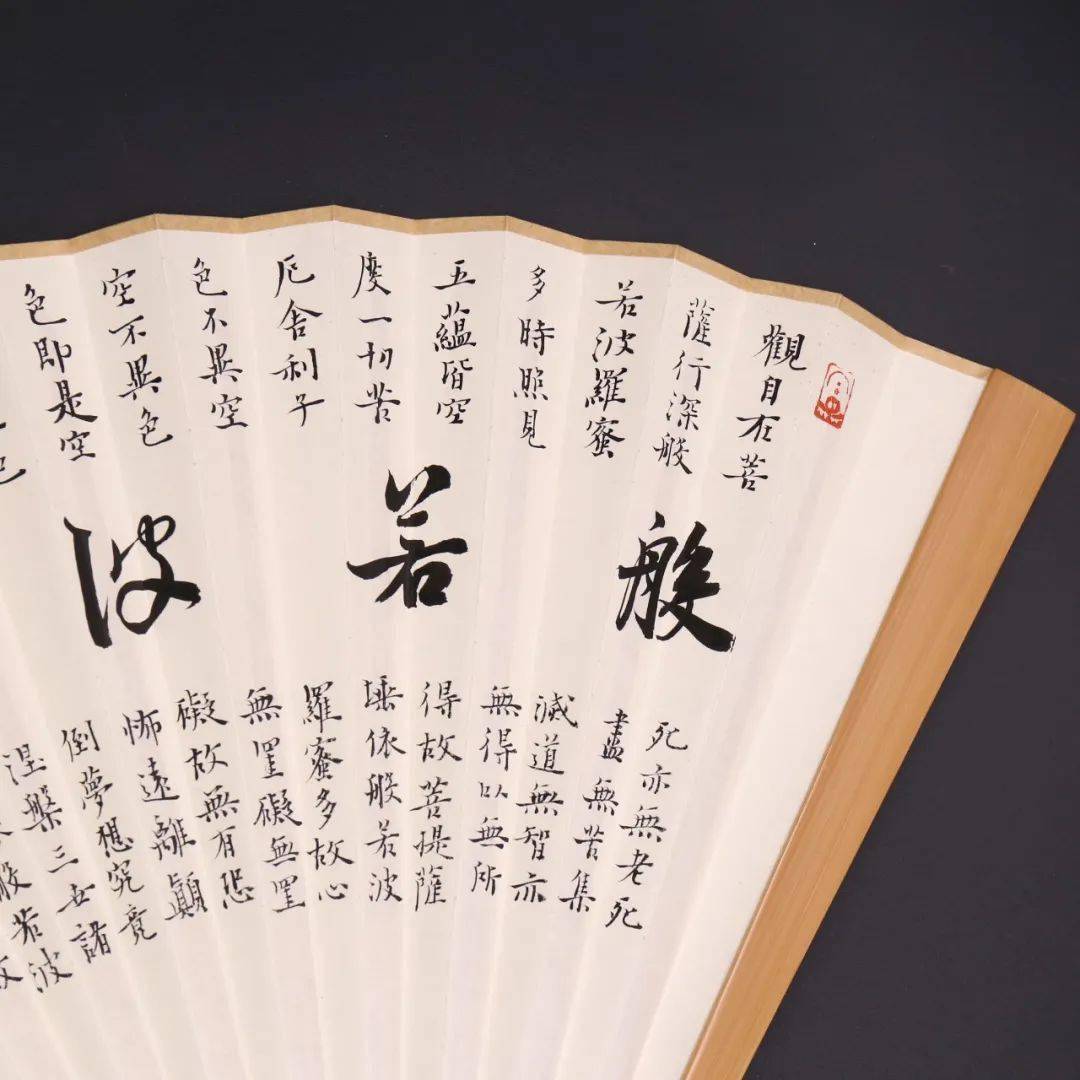 觀自在菩
薩行深般
若波羅蜜
多時照見
五蘊皆空
度一切苦
厄舍利子
色不異空
空不異色
色即是空
般若波
死亦無老死
盡無苦集
滅道無智亦
無得以無所
得故菩提薩
埵依般若波
羅蜜多故心
無罣礙無罣
礙故無有恐
怖遠離顛
倒夢想究竟
涅槃三世諸
般若波